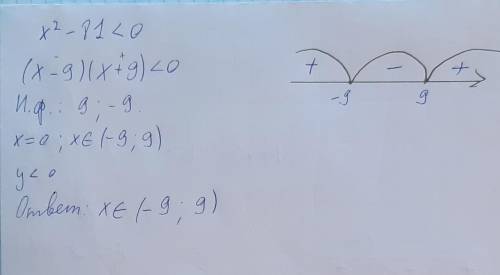 x² - 81 < 0
(x - 9)(x + 9) < 0
- +
Н.ф.: 9 ; -9.
x = 0 ; x ∈ (-9 ; 9)
y < 0
Ответ: x ∈ (-9 ; 9)
+ - +
-9 9